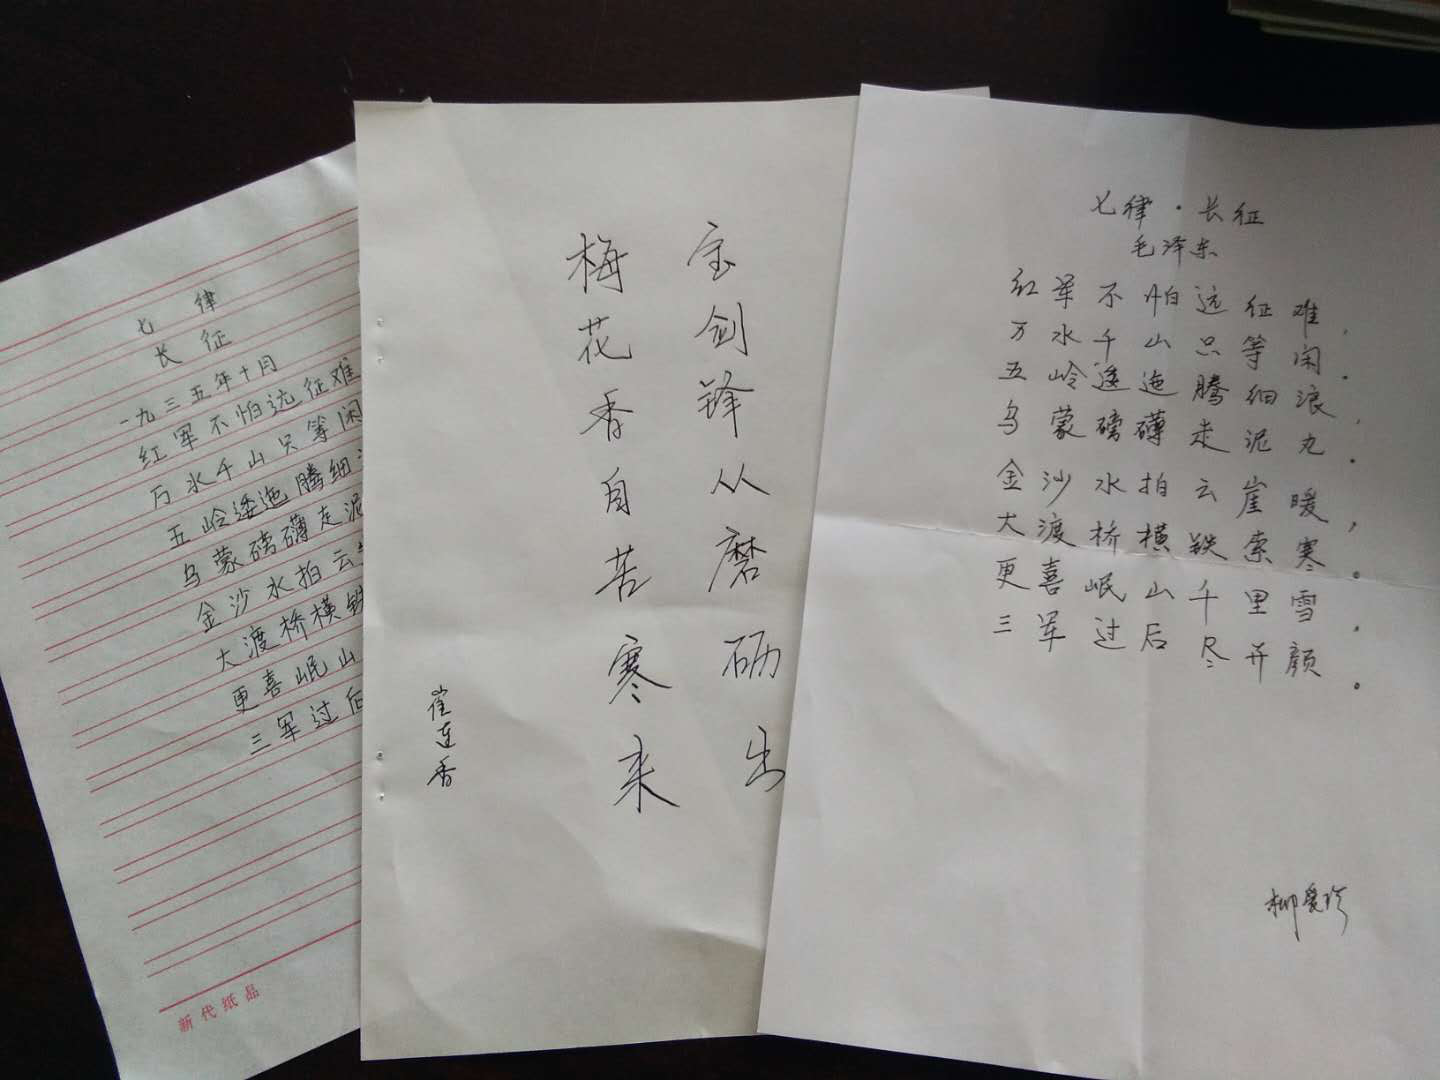 七律
长征
一九三五年十月
红军不怕远征难
万水千山只等闲
五岭逶迤腾细
乌蒙磅礴走泥
金沙水拍云
大渡桥横铁
更喜岷山
三军过后
新代纸品
宝剑锋从磨砺出
梅花香自苦寒来
崔连香
七律·长征
毛泽东
红军不怕远征难,
万水千山只等闲.
五岭逶迤腾细浪,
乌蒙磅礴走泥丸.
金沙水拍云崖暖,
大渡桥横铁索寒。
更喜岷山千里雪,
三军过后尽开颜。
柳爱珍